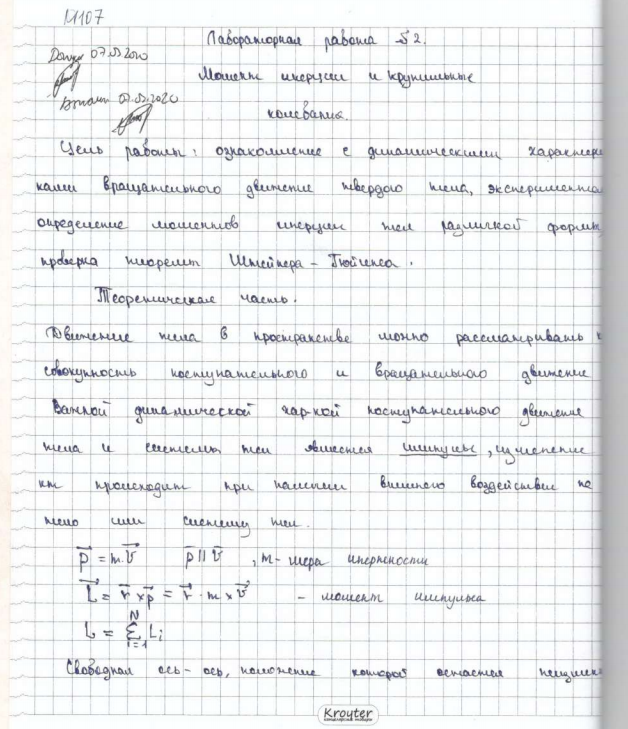 М107
Лабораторная работа №2.
Допуск 07.03.2020
Момент инерции и крутильные
07.03.2020
колебания.
Цель работы: ознакомление с динамическими характери
ками вращательного движение твердого тела, экспериментал
определение моментов инерции тел различной формы
проверка теоремы Штейнера - Гюйгенса.
Теоретическая часть.
Движение тела в пространстве можно рассматривать к
совокупность поступательного и вращательного движение
Важной динамической хар-кой поступательного движение
тела и системы тел является импульс, изменение
кт происходит при наличии внешнего воздействии на
тело или систему тел.
p⃗ = m·v⃗ p⃗ || v⃗ , m - мера инертности
L⃗ = r⃗ × p⃗ = r⃗ · m × v⃗ - момент импульса
L = Σ_{i=1}^{N} L_i
Свободная ось - ось, положение которой остается неизмен
Kroyter
канцелярские товары